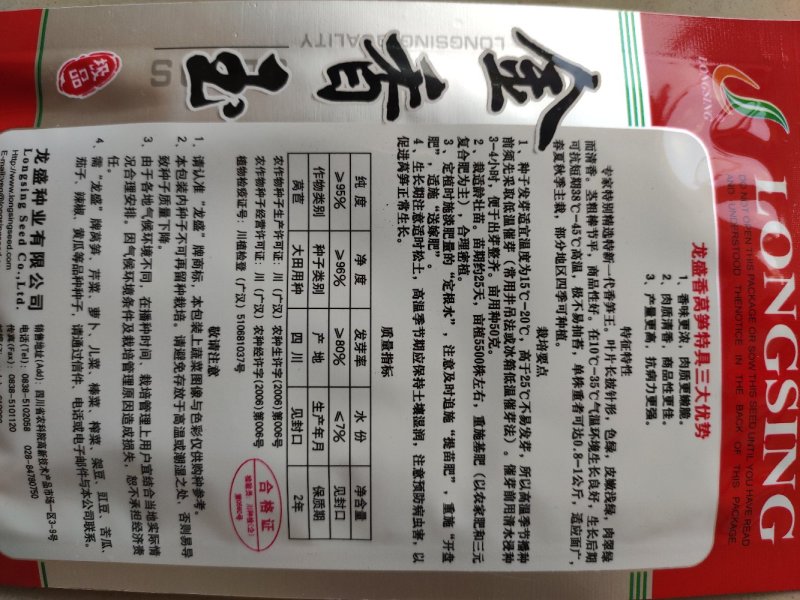 LONGSING
LONGSING
DO NOT OPEN THIS PACKAGE OR SOW THIS SEED UNTIL YOU HAVE READ
AND UNDERSTOOD THENOTICE IN THE BACK OF THIS PACKAGE.
LONGSING QUALITY
金香玉
极品
龙盛香莴笋特具三大优势
1、香味更浓，肉质更嫩脆。
2、肉质清香，商品性更佳。
3、产量更高，抗病力更强。
特征特性
专家特别精选特新一代香笋王，叶片长披针形，色绿，皮嫩浅绿，肉翠绿
而清香，茎粗棒节平，商品性好，在10℃-35℃气温环境生长良好，生长后期
可抗短期38℃-45℃高温，极不易抽苔，单株重者可达0.8-1公斤，适应面广，
春夏秋季主栽，部分地区四季可种植。
栽培要点
1、种子发芽适宜温度为15℃-20℃，高于25℃不易发芽，所以高温季节播种
前须先采取低温催芽（常用井吊法或冰箱低温催芽法）。催芽前用清水浸种
3-4小时，便于出芽整齐，亩用种50克。
2、栽适龄壮苗。苗期约25天，亩植5500株左右，重施基肥（以农家肥和三元
复合肥为主），合理密植。
3、定植时施淡肥量“定根水”，注意及时追施“提苗肥”，重施“开盘
肥”，适施“送嫁肥”。
4、生长期注意适时松土，高温季节期应保持土壤湿润，注意预防病虫害，以
促进莴笋正常生长。
质量指标
纯度 净度 发芽率 水份 净含量
≥95% ≥96% ≥80% ≤7% 见封口
作物类别 种子类别 产地 生产年月 保质期
莴苣 大田用种 四川 见封口 2年
农作物种子生产许可证：川（广汉）农种生许字(2006)第006号
农作物种子经营许可证：川（广汉）农种经许字(2006)第006号
植物检疫证号：川植检登（广汉）5106810З7号
合格证
敬请注意
1、请认准“龙盛”牌商标，本包装上蔬菜图像与色彩仅供购种参考。
2、本包装内种子不可再留种栽培。请避免存放于高温或潮湿之处，否则易导
致种子质量下降。
3、由于各地气候环境不同，在播种时间、栽培管理上用户宜结合当地实际情
况合理安排。因气候环境条件及栽培管理原因造成损失，恕不承担经济责
任。
4、需“龙盛”牌莴笋、芹菜、萝卜、儿菜、棒菜、榨菜、架豆、豇豆、苦瓜、
茄子、辣椒、黄瓜等品种种子，请通过信件、电话或电子邮件与本公司联系。
龙盛种业有限公司
Longsing Seed Co.,Ltd.
Http://www.longsingseed.com
销售地址(Add)：四川省农科院高新技术产品市场一区3-9号
电话(Tel)：0838-5102058 028-84790750
传真(Fax)：0838-5101120